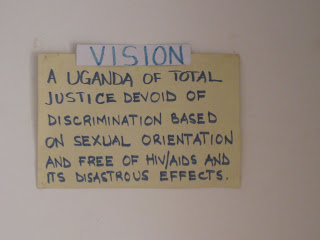 VISION
A UGANDA OF TOTAL
JUSTICE DEVOID OF
DISCRIMINATION BASED
ON SEXUAL ORIENTATION
AND FREE OF HIV/AIDS AND
ITS DISASTROUS EFFECTS.